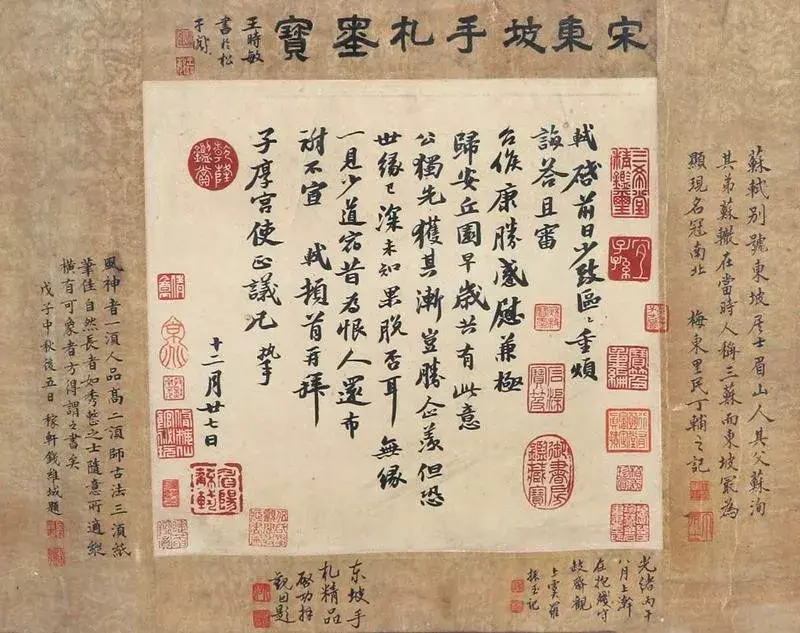 宋東坡手札墨寶
王時敏
書於松
蘇軾別號東坡居士眉山人其父蘇洵
其弟蘇轍在當時人稱三蘇而東坡最為
顯現名冠南北 梅東里民丁輔之記
三希堂精鑑璽
宜子孫
軾啓前日少致區〻重煩
誨答且審
台候康勝感慰兼極
歸安丘園早歲共有此意
公獨先獲其漸豈勝企羨但恐
世緣已深未知果脫否耳無緣
一見少道宿昔為恨人還布
謝不宣 軾頓首再拜
子厚宮使正議兄執事
十二月廿七日
乾隆鑑賞
石渠寶笈
御書房鑑藏寶
眉陽蘇軾
風神者一須人品高二須師古法三須紙
筆佳自然長者如秀整之士隨意所適縱
橫有可象者方得謂之書矣
戊子中秋後五日 稼軒錢維城題
光緒丙午
八月上澣
在抱殘守
缺齋觀
上虞羅
振玉記
东坡手
札精品
啓功拜
觀因題